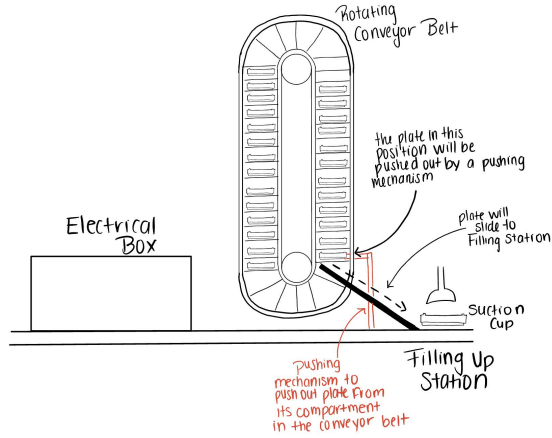 Rotating
Conveyor Belt
the plate in this
position will be
pushed out by a pushing
mechanism
plate will
slide to
Filling Station
Electrical
Box
Suction
Cup
Filling Up
Station
pushing
mechanism to
push out plate from
its compartment
in the conveyor belt